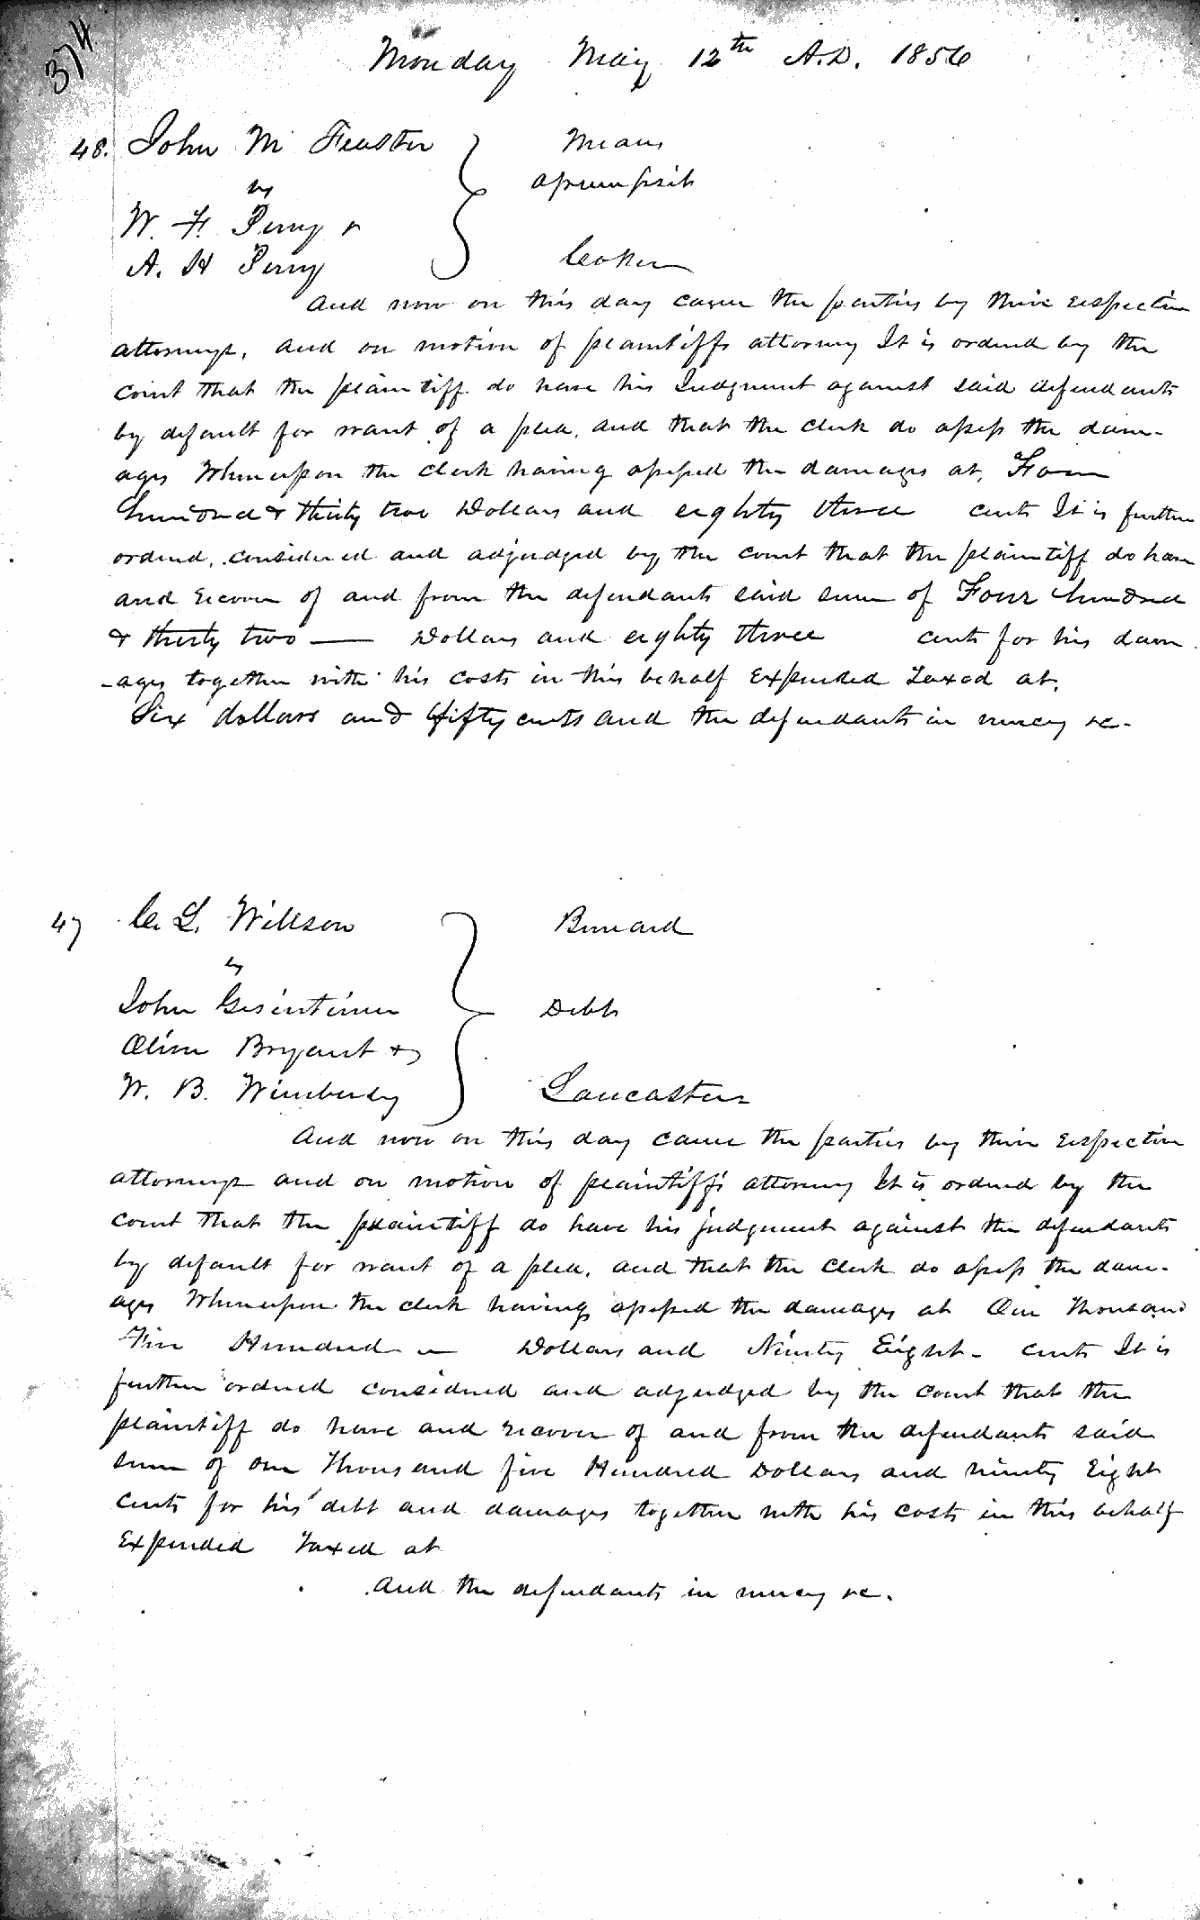 374
Monday May 12th A.D. 1856
48. John M Feaster } Means
vs assumpsit
W. F. Perry &
A. H Perry Coker
And now on this day came the parties by their respective
attorneys, and on motion of plaintiffs attorney It is ordered by the
court that the plaintiff do have his Judgment against said defendants
by default for want of a plea, and that the clerk do assess the dam-
ages Whereupon the clerk having assessed the damages at, Four
hundred & thirty two Dollars and eighty three cents It is further
ordered, considered and adjudged by the court that the plaintiff do have
and recover of and from the defendants said sum of Four hundred
& thirty two — Dollars and eighty three cents for his dam
-ages together with his costs in this behalf Expended Taxed at,
Six dollars and fifty cents and the defendants in mercy &c-
47 C. L. Willson } Bernard
vs
John Debt
Olive Bryant &
W. B. Wimberly Lancaster
And now on this day came the parties by their respective
attorneys and on motion of plaintiff's attorney It is ordered by the
court that the plaintiff do have his judgment against the defendants
by default for want of a plea, and that the clerk do assess the dam-
ages Whereupon the clerk having assessed the damages at One Thousand
Five Hundred — Dollars and Ninety Eight - cents It is
further ordered considered and adjudged by the court that the
plaintiff do have and recover of and from the defendants said
sum of one Thousand five Hundred Dollars and ninety Eight
cents for his debt and damages together with his costs in this behalf
Expended Taxed at
And the defendants in mercy &c.